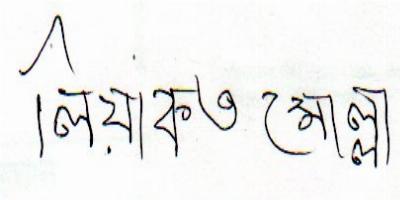 লিয়াকত মোল্লা